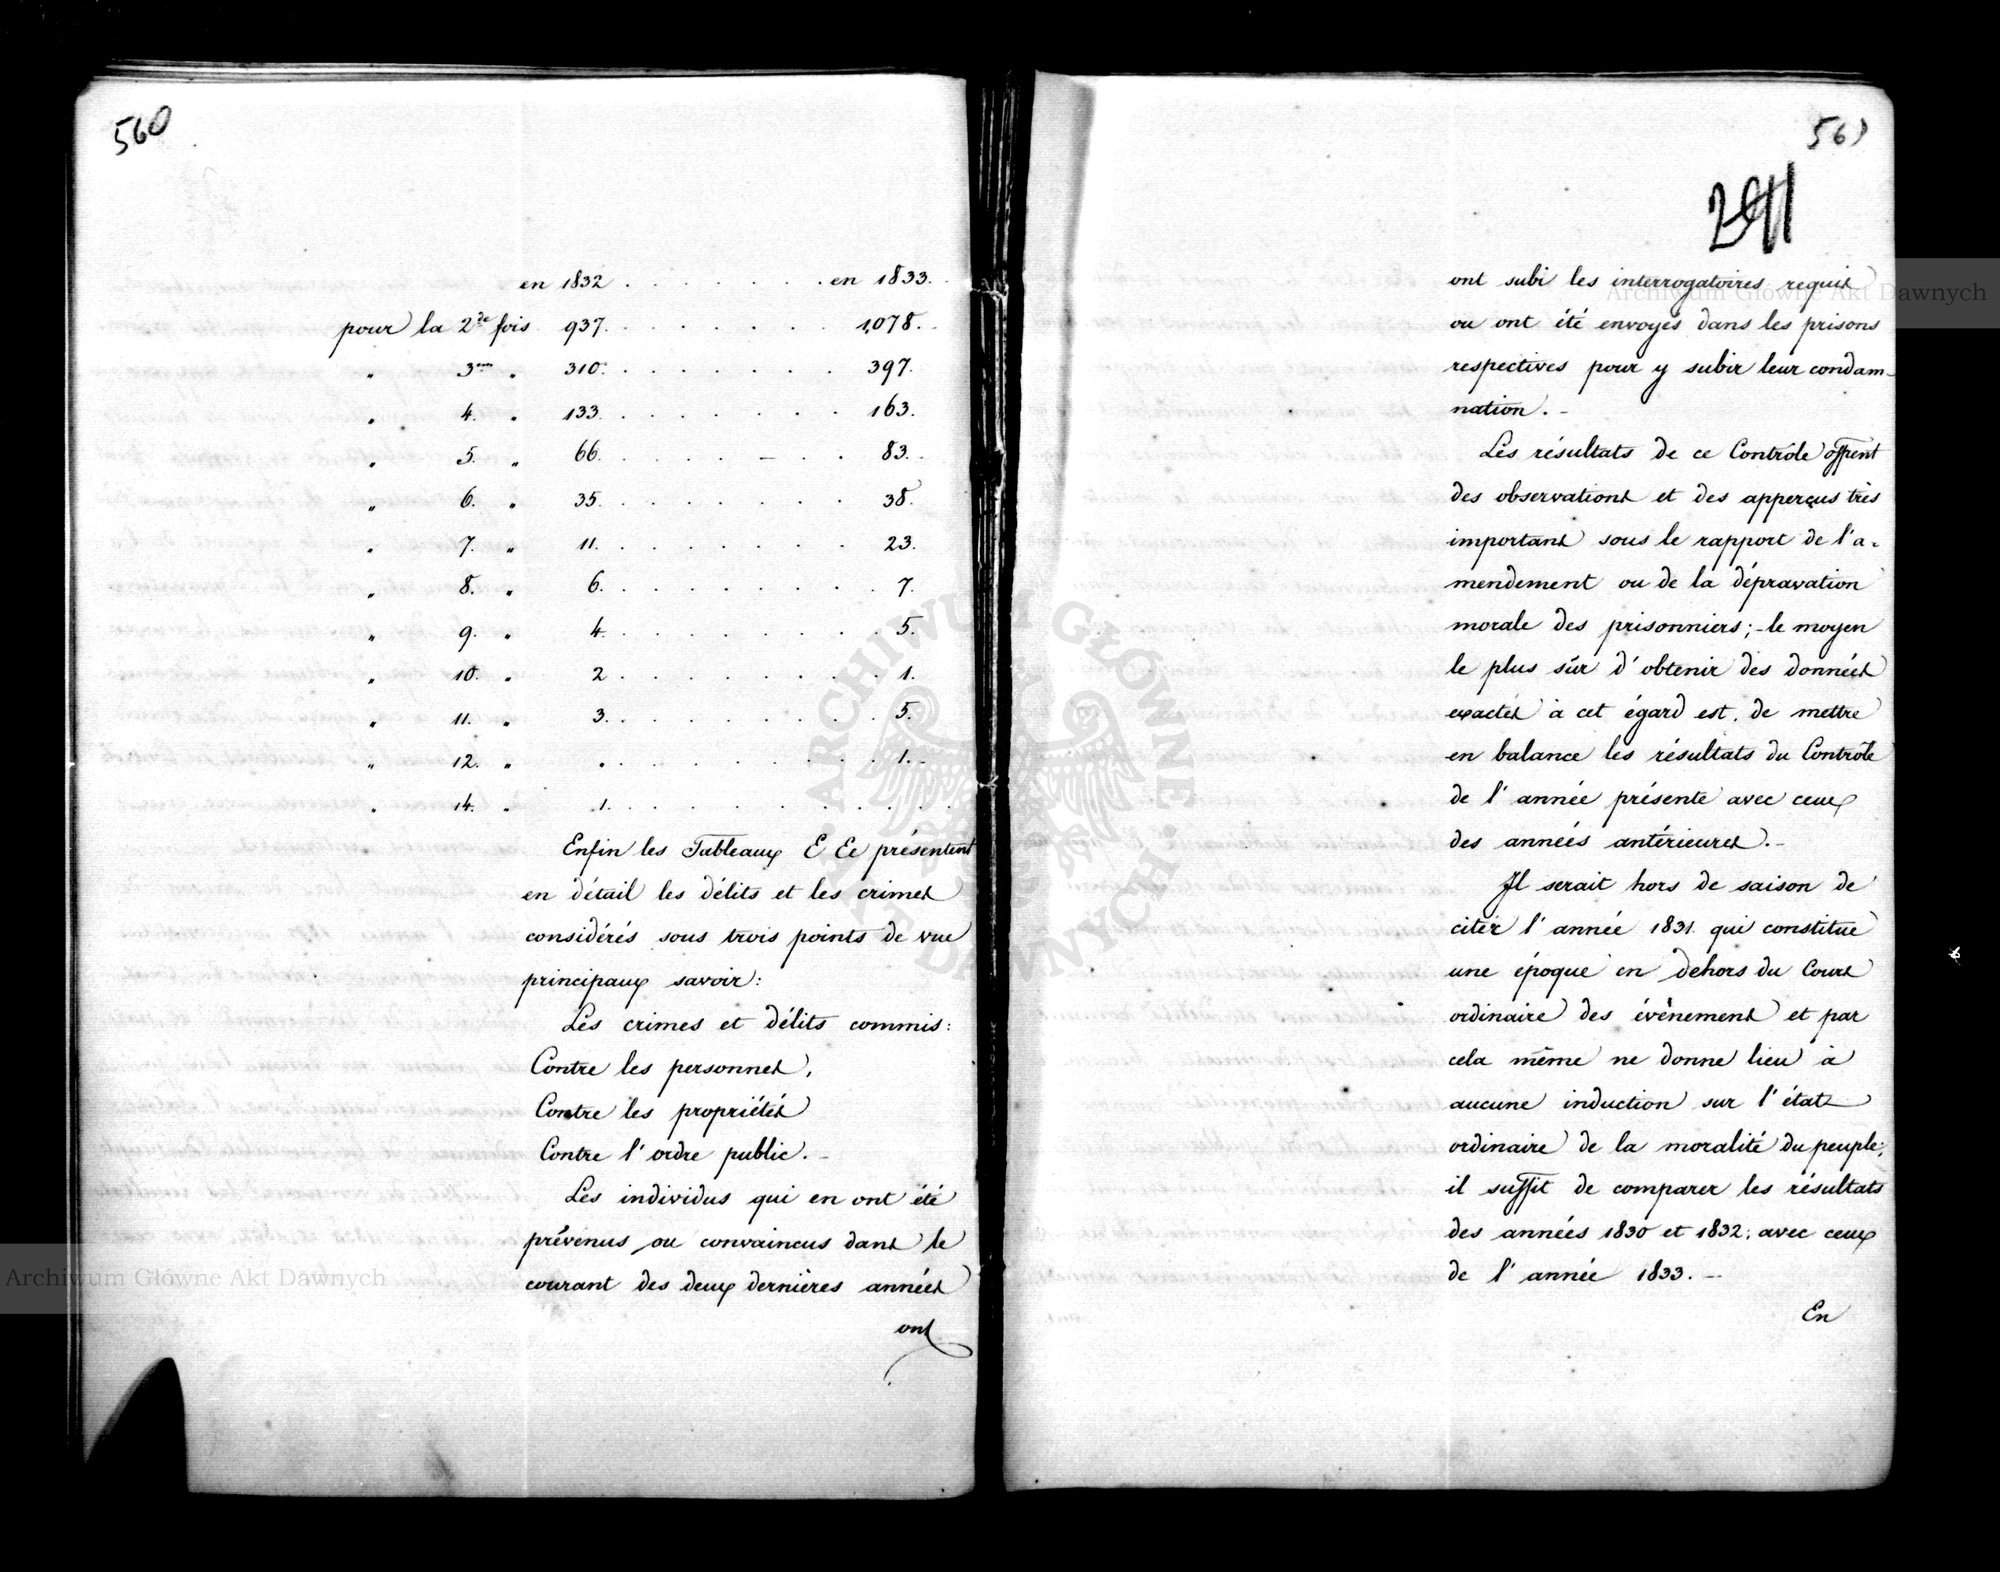 560
en 1832 . . . . . . . en 1833.
pour la 2de fois 937. . . . . . . 1078.
" 3me " 310. . . . . . . 397.
" 4. " 133. . . . . . . 163.
" 5. " 66. . . . . – . . 83.
" 6. " 35. . . . . . . 38.
" 7. " 11. . . . . . . 23.
" 8. " 6. . . . . . . . 7.
" 9. " 4. . . . . . . . 5.
" 10. " 2 . . . . . . . . 1.
" 11. " 3. . . . . . . . 5.
" 12. " . . . . . . . . . 1.
" 14. " 1. . . . . . . . .
Enfin les Tableaux E Ee présentent
en détail les délits et les crimes
considérés sous trois points de vue
principaux savoir:
Les crimes et délits commis:
Contre les personnes,
Contre les propriétés
Contre l'ordre public. –
Les individus qui en ont été
prévenus ou convaincus dans le
courant des deux dernières années
ont
561
ont subi les interrogatoires requis
ou ont été envoyés dans les prisons
respectives pour y subir leur condam-
nation. –
Les résultats de ce Contrôle offrent
des observations et des apperçus très
importans sous le rapport de l'a-
mendement ou de la dépravation
morale des prisonniers; – le moyen
le plus sûr d'obtenir des données
exactes à cet égard est, de mettre
en balance les résultats du Contrôle
de l'année présente avec ceux
des années antérieures. –
Il serait hors de saison de
citer l'année 1831. qui constitue
une époque en dehors du Cours
ordinaire des événemens et par
cela même ne donne lieu à
aucune induction sur l'état
ordinaire de la moralité du peuple;
il suffit de comparer les résultats
des années 1830 et 1832; avec ceux
de l'année 1833. –
En
Archiwum Główne Akt Dawnych
Archiwum Główne Akt Dawnych
ARCHIWUM GŁÓWNE AKT DAWNYCH